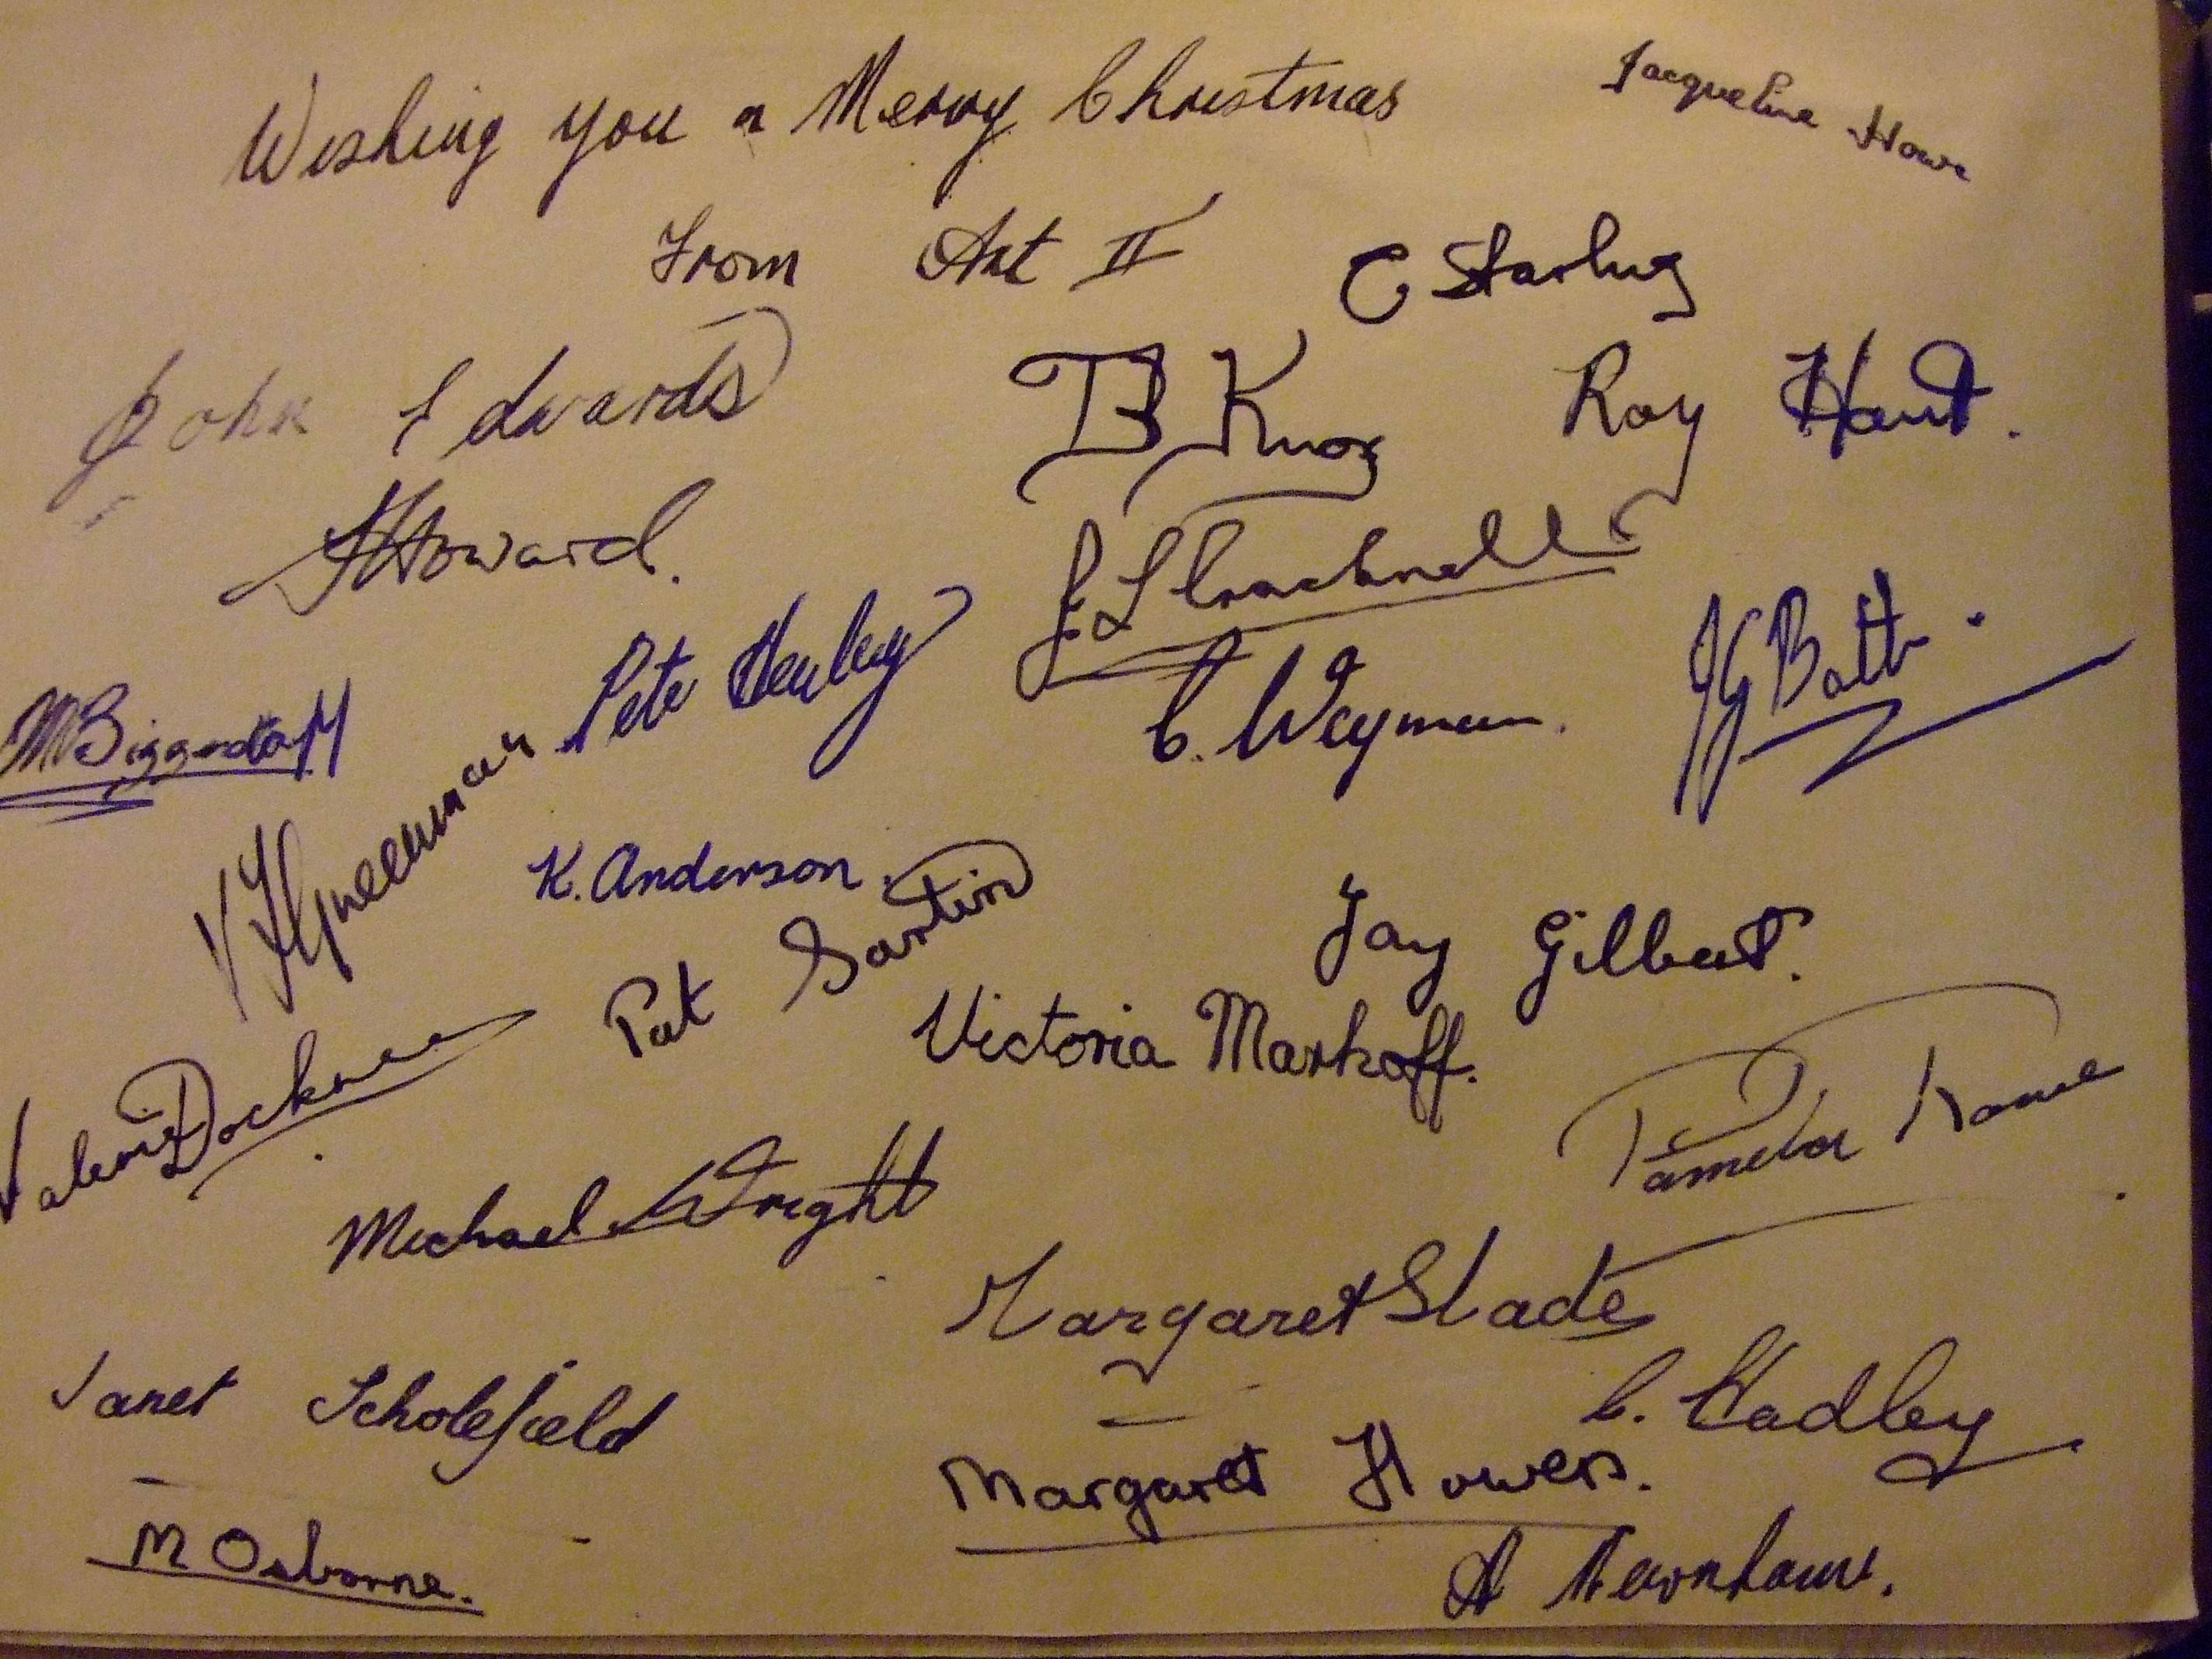 Wishing you a Merry Christmas
Jacqueline Howe
From Art II
C Starling
John Edwards
B Knox
Roy Hand.
Howard.
Pete Henley
C. Weyman.
JG Batt.
M Biggerstaff
Greenman
K. Anderson
Pat Sartin
Jay Gilbert.
Victoria Markoff.
Valerie
Pamela
Michael Wright
Margaret Slade
Janet Scholefield
C. Hadley
Margaret Howers.
M Osborne.
A